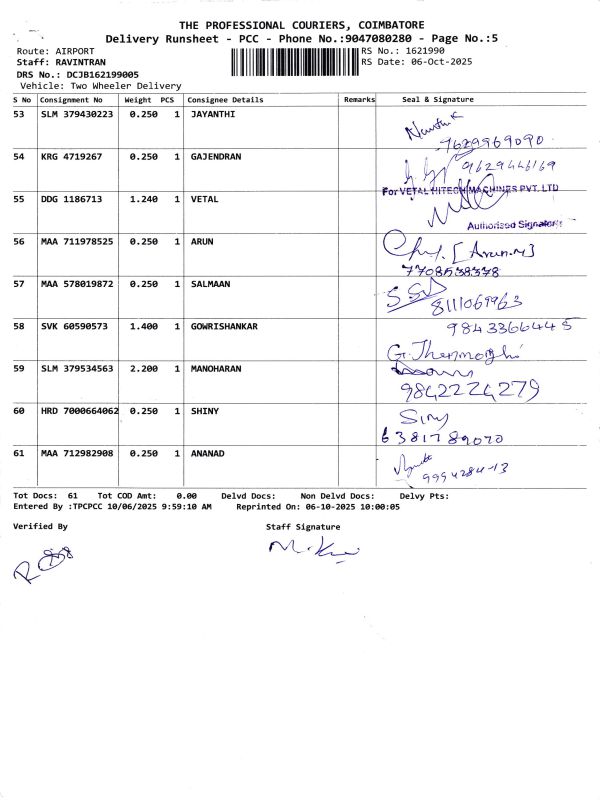 THE PROFESSIONAL COURIERS, COIMBATORE
Delivery Runsheet - PCC - Phone No.:9047080280 - Page No.:5
Route: AIRPORT RS No.: 1621990
Staff: RAVINTRAN RS Date: 06-Oct-2025
DRS No.: DCJB162199005
Vehicle: Two Wheeler Delivery
S No Consignment No Weight PCS Consignee Details Remarks Seal & Signature
53 SLM 379430223 0.250 1 JAYANTHI
7629969090
54 KRG 4719267 0.250 1 GAJENDRAN
9629446169
For VETAL HITECH MACHINES PVT. LTD
55 DDG 1186713 1.240 1 VETAL
Authorised Signatory
56 MAA 711978525 0.250 1 ARUN
[Arun.M]
7708538378
57 MAA 578019872 0.250 1 SALMAAN
8111069963
58 SVK 60590573 1.400 1 GOWRISHANKAR
9843366445
G. Thenmozhi
59 SLM 379534563 2.200 1 MANOHARAN
9842224279
60 HRD 7000664062 0.250 1 SHINY
6381789070
61 MAA 712982908 0.250 1 ANANAD
9994284413
Tot Docs: 61 Tot COD Amt: 0.00 Delvd Docs: Non Delvd Docs: Delvy Pts:
Entered By :TPCPCC 10/06/2025 9:59:10 AM Reprinted On: 06-10-2025 10:00:05
Verified By Staff Signature